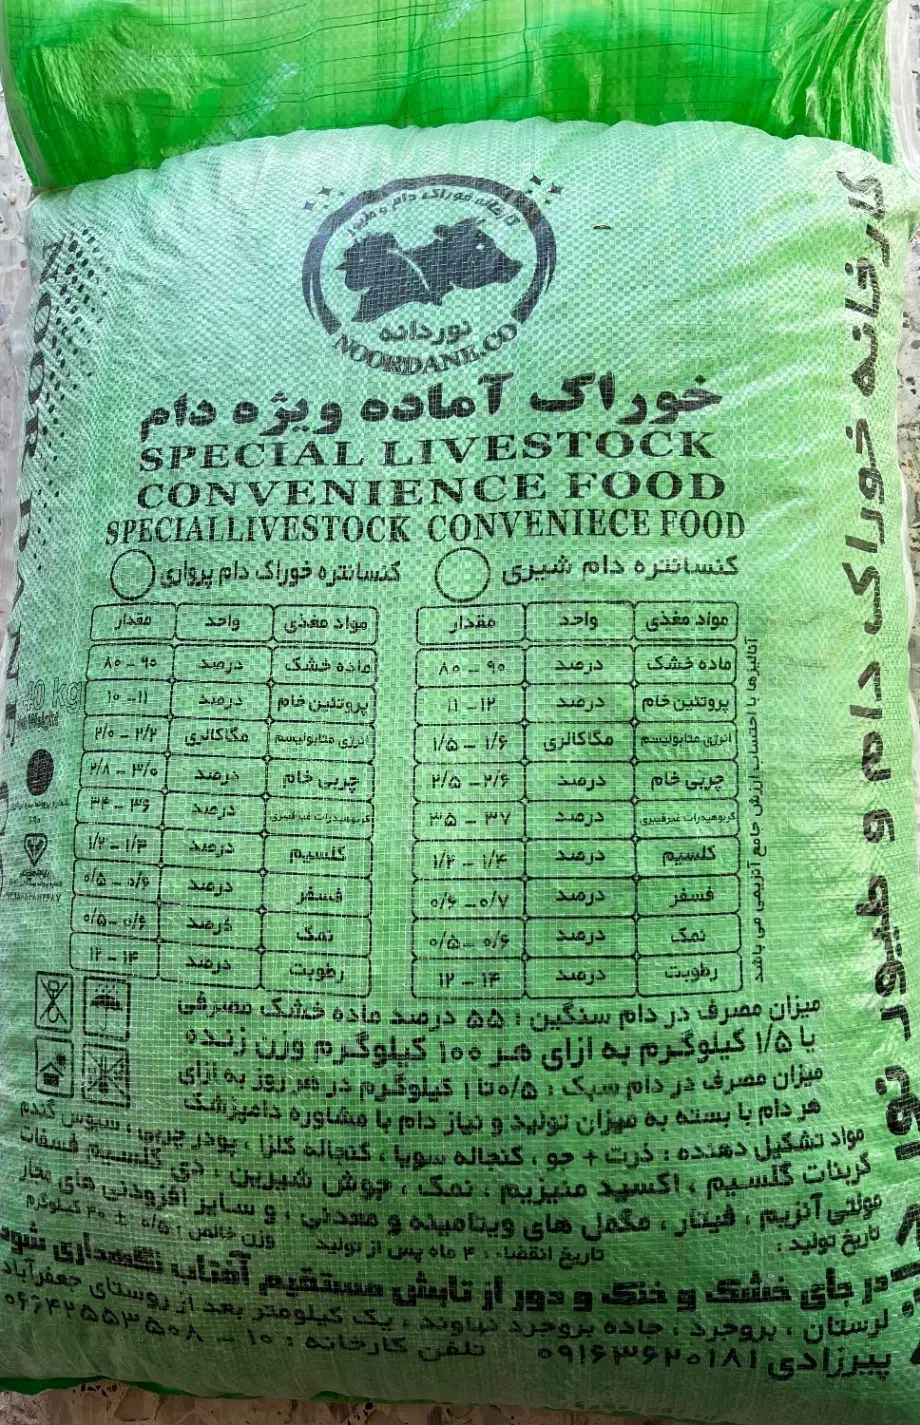 کارخانه خوراک دام و طیور
نوردانه
NOORDANE.CO
خوراک آماده ویژه دام
SPECIAL LIVESTOCK
CONVENIENCE FOOD
SPECIALLIVESTOCK CONVENIECE FOOD
کنسانتره دام شیری
مواد مغذی واحد مقدار
ماده خشک درصد ۹۰ – ۸۰
پروتئین خام درصد ۱۲–۱۱
انرژی متابولیسم مگاکالری ۱/۶ – ۱/۵
چربی خام درصد ۲/۶– ۲/۵
کربوهیدرات غیرفیبری درصد ۳۷ – ۳۵
کلسیم درصد ۱/۴ – ۱/۲
فسفر درصد ۰/۷– ۰/۶
نمک درصد ۰/۶ – ۰/۵
رطوبت درصد ۱۴ – ۱۲
کنسانتره خوراک دام پرواری
مواد مغذی واحد مقدار
ماده خشک درصد ۹۰ – ۸۰
پروتئین خام درصد ۱۱– ۱۰
انرژی متابولیسم مگاکالری ۲/۲ – ۲/۰
چربی خام درصد ۳/۰ – ۲/۸
کربوهیدرات غیرفیبری درصد ۳۶ – ۳۴
کلسیم درصد ۱/۳ – ۱/۲
فسفر درصد ۰/۶ – ۰/۵
نمک درصد ۰/۶ – ۰/۵
رطوبت درصد ۱۴ – ۱۲
آنالیزها با احتساب ارزش جامع آنزیمی می باشد
40 kg
Net Weight
میزان مصرف در دام سنگین : ۵۵ درصد ماده خشک مصرفی
یا ۱/۵ کیلوگرم به ازای هر ۱۰۰ کیلوگرم وزن زنده
میزان مصرف در دام سبک : ۰/۵ تا ۱ کیلوگرم در هر روز به ازای
هر دام یا بسته به میزان تولید و نیاز دام با مشاوره دامپزشک
مواد تشکیل دهنده : ذرت + جو ، کنجاله سویا ، کنجاله کلزا ، پودر چربی ، سبوس گندم
کربنات کلسیم ، اکسید منیزیم ، نمک ، جوش شیرین ، دی کلسیم فسفات
مولتی آنزیم ، فیتاز ، مکمل های ویتامینه و معدنی ، و سایر افزودنی های مجاز
تاریخ تولید : تاریخ انقضاء : ۴ ماه پس از تولید وزن خالص : ۰/۵ ± ۴۰ کیلوگرم
در جای خشک و خنک و دور از تابش مستقیم آفتاب نگهداری شود
لرستان ، بروجرد ، جاده بروجرد نهاوند ، یک کیلومتر بعد از روستای جعفرآباد
پیرزادی ۰۹۱۶۳۶۲۰۱۸۱ تلفن کارخانه : ۱۰ – ۰۶۶۴۲۵۵۳۵۰۸
کارخانه خوراک دام و طیور